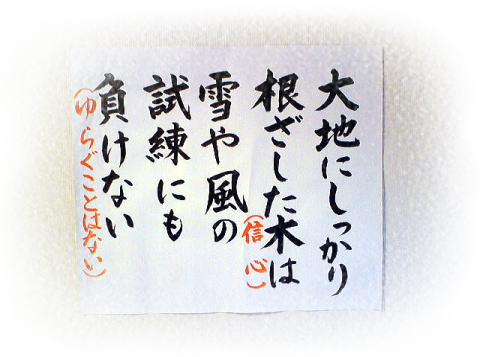 大地にしっかり
根ざした木は
(信心)
雪や風の
試練にも
負けない
(ゆらぐことはない)